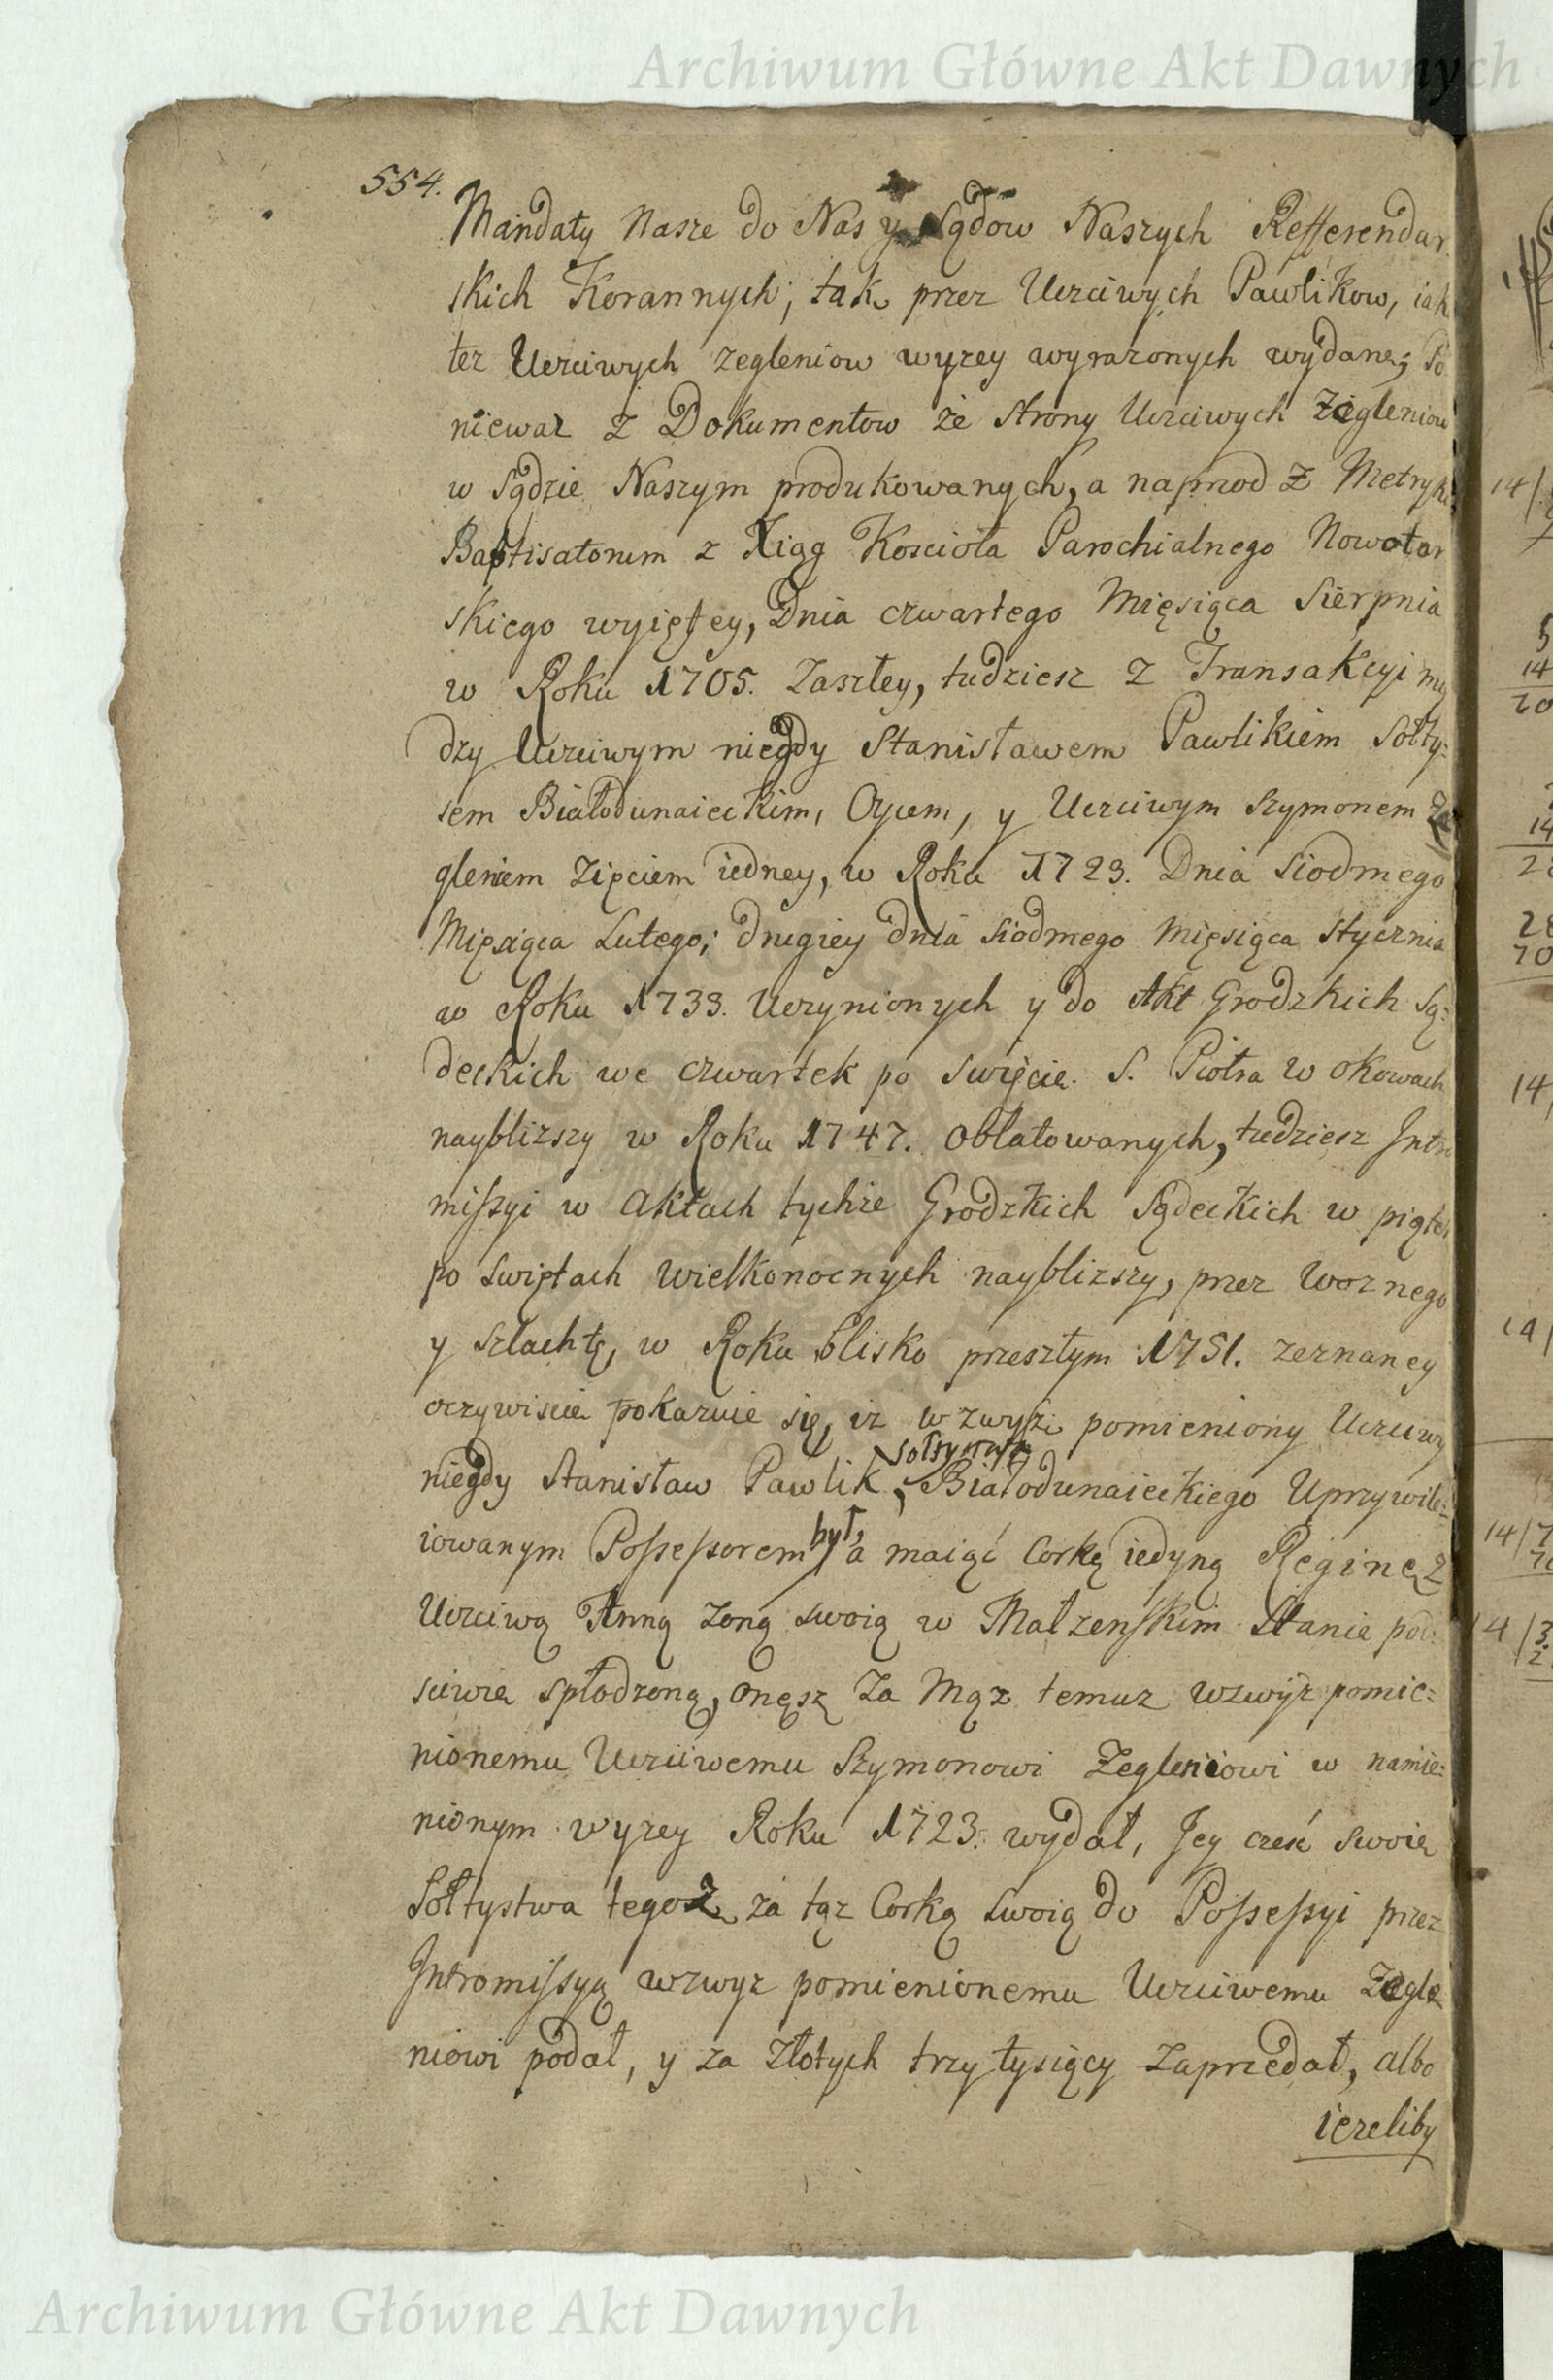 Archiwum Główne Akt Dawnych
554.
Mandaty Nasze do Nas y Sądow Naszych Refferendar
skich Korannych; tak przez Uczciwych Pawlikow, iak
tez Uczciwych Zegleniow wyzey wyrazonych wydane; Po
niewaz z Dokumentow ze strony Uczciwych Zegleniow
w Sądzie Naszym produkowanych, a naprzod z Metryki
Baptisatorum z Xiąg Kościoła Parochialnego Nowotar
skiego wyiętey, Dnia czwartego Miesiąca Sierpnia
w Roku 1705. Zaszłey, tudziesz z Transakcyi mię
dzy Uczciwym niegdy Stanisławem Pawlikiem Sołty:
sem Białodunaieckim, Oycem, y Uczciwym Szymonem Ze
gleniem Zięciem iedney, w Roku 1723. Dnia Siodmego
Miesiąca Lutego; drugiey dnia siodmego Miesiąca Stycznia
w Roku 1733. Uczynionych y do Akt Grodzkich Są:
deckich we czwartek po swięcie S. Piotra w okowach
nayblizszy w Roku 1747. oblatowanych, tudziesz Intro
missyi w Aktach tychze Grodzkich Sądeckich w piątek
po swiętach Wielkonocnych nayblizszy, przez Woznego
y szlachtę, w Roku blisko przeszłym 1751. zeznaney
oczywiscie pokazuie się, iz wzwyz pomieniony Uczciwy
Sołtystwa
niegdy Stanisław Pawlik, Białodunaieckiego Uprzywile:
iowanym Possessorem był, a maiąc Corkę iedyną Reginę z
Uczciwą Anną Zoną swoią w Małzenskim Stanie pod:
sciwie spłodzoną, onęsz Za Mąz temuz wzwyz pomie:
nionemu Uczciwemu Szymonowi Zegleniowi w namie:
nionym wyzey Roku 1723. wydał, Jey czesć swoię
Sołtystwa tegoz za tąz Corką swoią do Possessyi przez
Intromissyą wzwyz pomienionemu Uczciwemu Zegle
niowi podał, y za Złotych trzy tysiący Zaprzedał, albo
iezeliby
Archiwum Główne Akt Dawnych